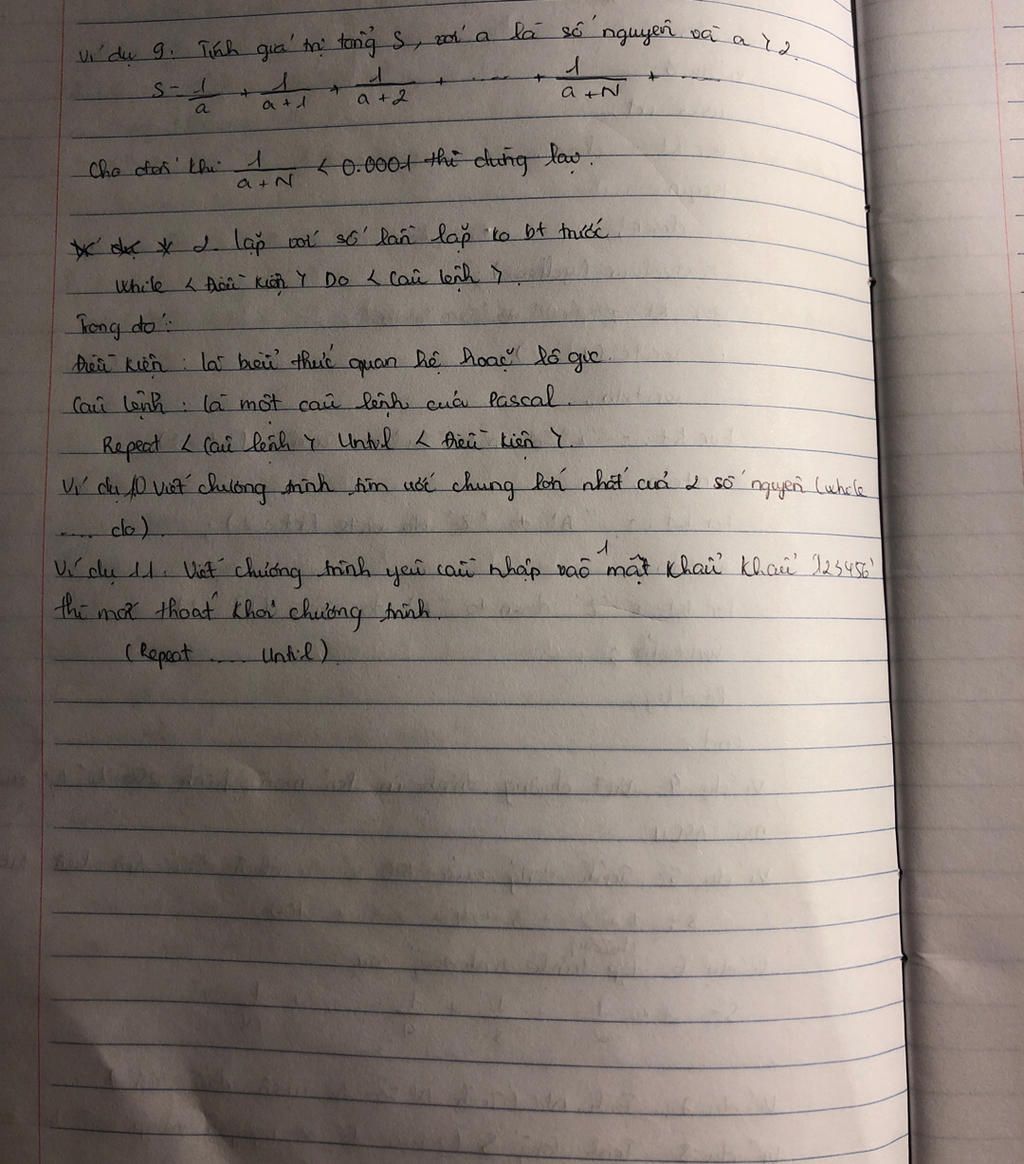 Ví dụ 9: Tính giá trị tổng S, với a là số nguyên và a > 2.
S = 1/a + 1/(a+1) + 1/(a+2) + ..... + 1/(a+N) + .....
Cho đến khi 1/(a+N) < 0.0001 thì dừng lại.
* 2. lặp với số lần lặp ko bt trước
While < Điều kiện > Do < Câu lệnh >.
Trong đó:
Điều kiện : là biểu thức quan hệ hoặc lô gíc.
Câu lệnh : là một câu lệnh của Pascal.
Repeat < Câu lệnh > Until < Điều kiện >.
Ví dụ 10 Viết chương trình tìm ước chung lớn nhất của 2 số nguyên (while
.... do).
Ví dụ 11: Viết chương trình yêu cầu nhập vào 1 mật khẩu khẩu '123456'
thì mới thoát khỏi chương trình.
(Repeat .... Until)